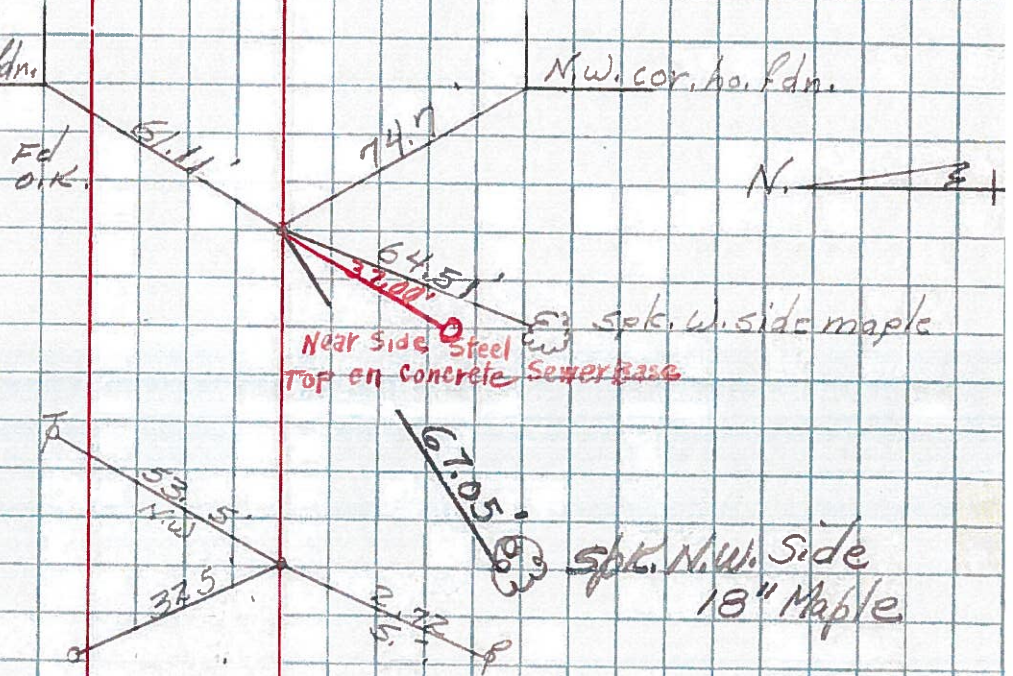 dn.
N.W. cor. ho. fdn.
Fd
O.K.
74.7
N.
64.51'
37.00'
spk. W. side maple
Near Side Steel
Top en Concrete Sewer Base
53.5
N.W
67.05'
spk. N.W. Side
18" Maple
37.5